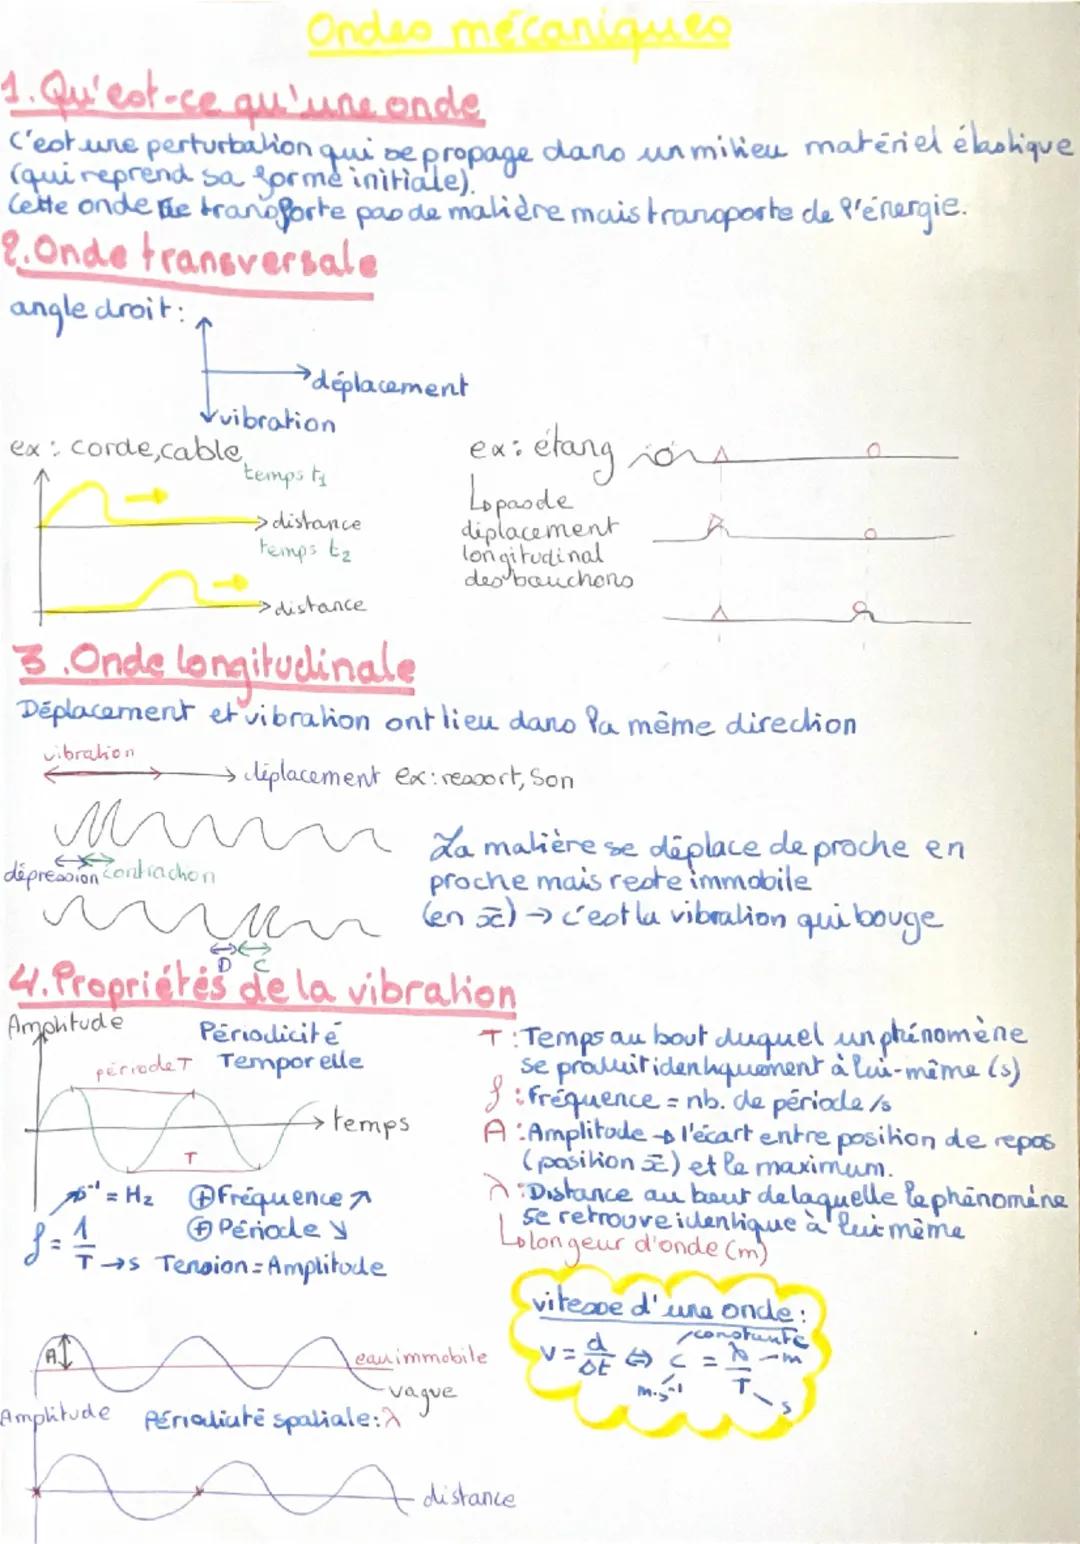 Ondes mécaniques
1. Qu'est-ce qu'une onde
C'est une perturbation qui se propage dans un milieu matériel élastique
(qui reprend sa forme initiale).
Cette onde ne transporte pas de matière mais transporte de l'énergie.
2. Onde transversale
angle droit:
déplacement
vibration
ex: corde, cable
temps t1
distance
temps t2
distance
ex: étang
↳ pas de
déplacement
longitudinal
des bouchons
3. Onde longitudinale
Déplacement et vibration ont lieu dans la même direction
vibration
déplacement ex: ressort, son
dépression contraction
D C
La matière se déplace de proche en
proche mais reste immobile
(en x̄) → c'est la vibration qui bouge
4. Propriétés de la vibration
Amplitude
Périodicité
Temporelle
période T
temps
T
s⁻¹ = Hz
f = 1/T → s
⊕ Fréquence ↗
⊕ Période ↘
Tension = Amplitude
T : Temps au bout duquel un phénomène
se produit identiquement à lui-même (s)
f : fréquence = nb. de période /s
A : Amplitude → l'écart entre position de repos
(position x̄) et le maximum.
λ : Distance au bout de laquelle le phénomène
se retrouve identique à lui-même
↳ longeur d'onde (m)
vitesse d'une onde :
constante
v = d/Δt ⇔ c = λ/T
m
m.s⁻¹
s
A
eau immobile
vague
Amplitude
Périodicité spatiale: λ
distance